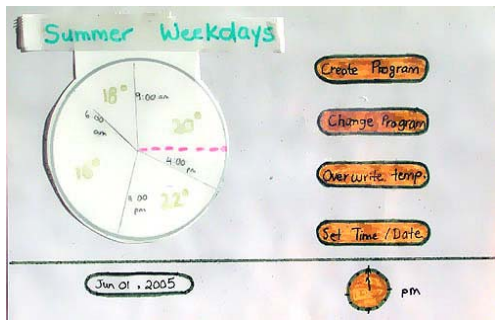 Summer Weekdays
18°
9:00 am
6:00
am
20°
4:00
pm
18°
22°
Create Program
Change Program
Overwrite temp.
Set Time / Date
Jun 01, 2005
pm